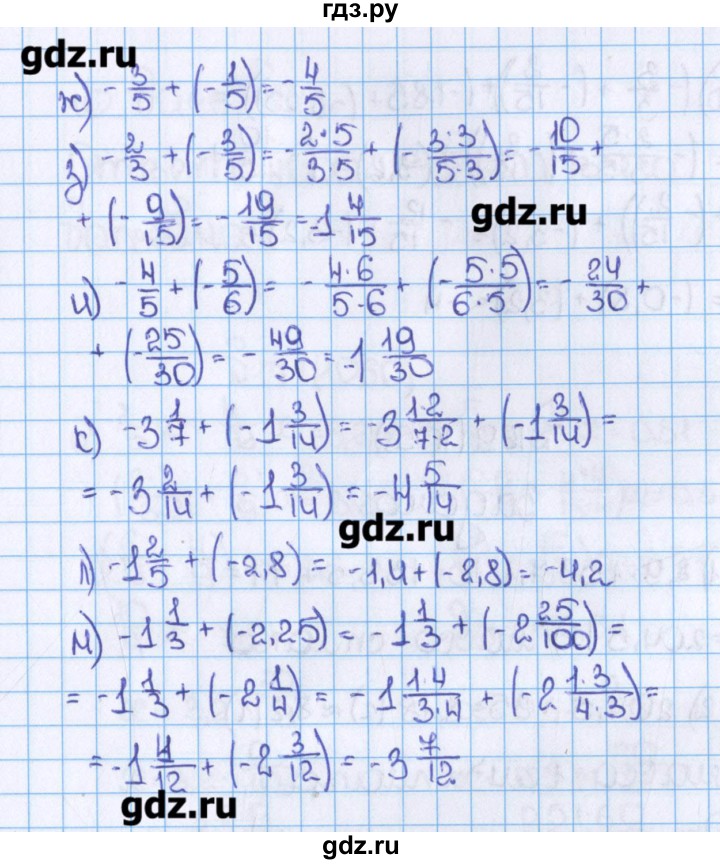 гдз.ру
gdz.ru
ж) -3/5 + (-1/5) = -4/5
з) -2/3 + (-3/5) = -2·5/3·5 + (-3·3/5·3) = -10/15 +
+ (-9/15) = -19/15 = -1 4/15
gdz.ru
и) -4/5 + (-5/6) = -4·6/5·6 + (-5·5/6·5) = -24/30 +
+ (-25/30) = -49/30 = -1 19/30
к) -3 1/7 + (-1 3/14) = -3 1·2/7·2 + (-1 3/14) =
= -3 2/14 + (-1 3/14) = 4 5/14
gdz.ru
л) -1 2/5 + (-2,8) = -1,4 + (-2,8) = -4,2
м) -1 1/3 + (-2,25) = -1 1/3 + (-2 25/100) =
= -1 1/3 + (-2 1/4) = -1 1·4/3·4 + (-2 1·3/4·3) =
= -1 4/12 + (-2 3/12) = -3 7/12
gdz.ru
gdz.ru